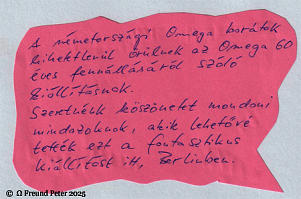 A németországi Omega barátok
hihetetlenül örülnek az Omega 60
éves fennállásáról szóló
kiállításnak.
Szeretnénk köszönetet mondani
mindazoknak, akik lehetővé
tették ezt a fantasztikus
kiállítást itt, Berlinben.
© Ω Freund Peter 2025